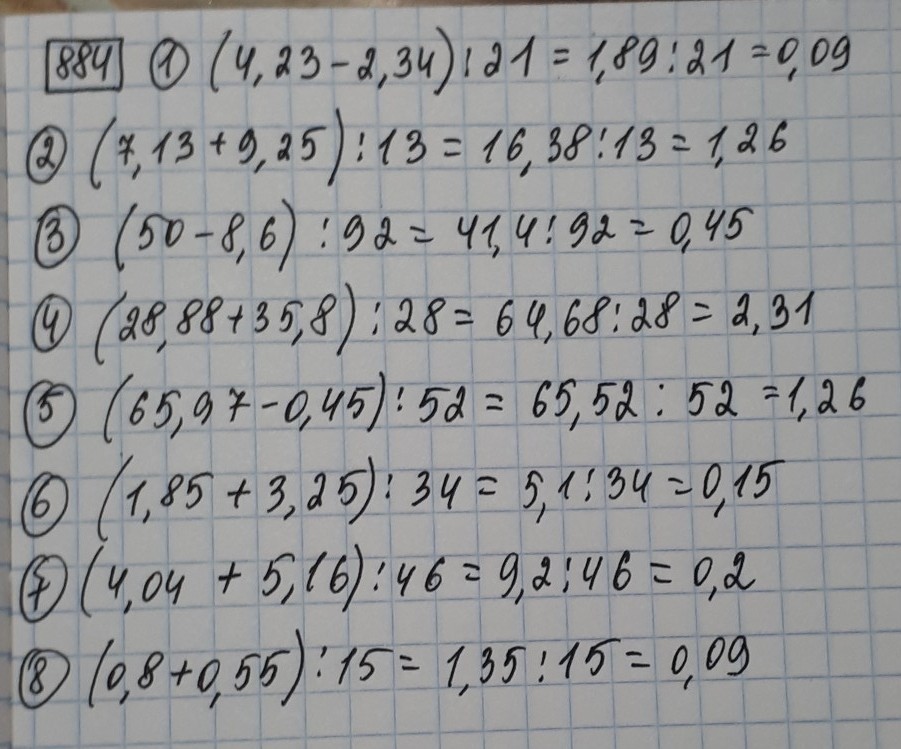 884 ① (4,23-2,34):21=1,89:21=0,09
② (7,13+9,25):13=16,38:13=1,26
③ (50-8,6):92=41,4:92=0,45
④ (28,88+35,8):28=64,68:28=2,31
⑤ (65,97-0,45):52=65,52:52=1,26
⑥ (1,85+3,25):34=5,1:34=0,15
⑦ (4,04+5,16):46=9,2:46=0,2
⑧ (0,8+0,55):15=1,35:15=0,09